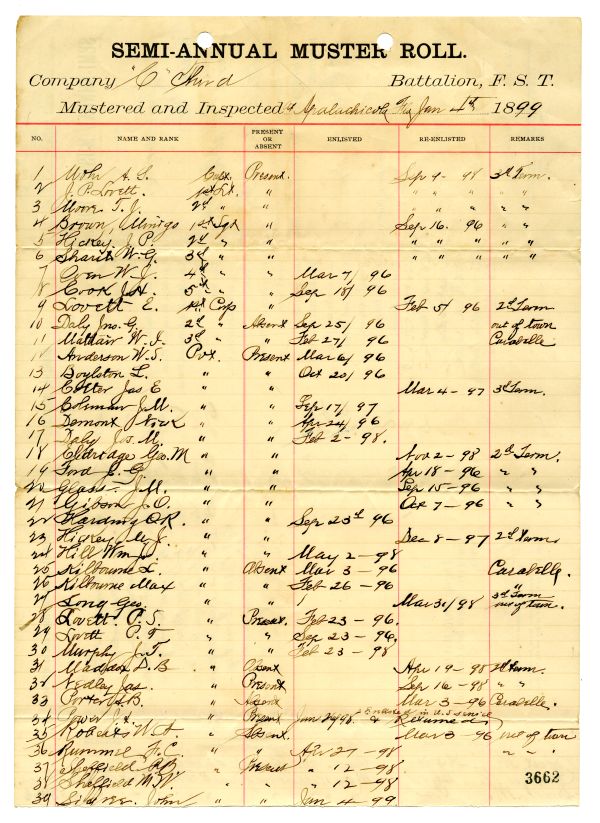 SEMI-ANNUAL MUSTER ROLL.
Company "C" Third Battalion, F. S. T.
Mustered and Inspected Apalachicola Fla Jan 4th 1899
NO. NAME AND RANK PRESENT OR ABSENT ENLISTED RE-ENLISTED REMARKS
1 A. S. Capt. Present. Sep 9 - 98 3d Term.
2 J. P. Lovett. 1st Lt. " " " " " "
3 Moore T. J. 2d " " " " " " "
4 Brown, Mingo 1st Sgt " Sep 16. 96 " "
5 Hickey J. P. 2d " " " " " " "
6 W. G. 3d " " " " " " "
7 Oven W. J. 4th " " Mar 7/96
8 Cook J. H. 5th " " Sep 18/96
9 Lovett E. 1st Corp " Feb 5/96 2d Term
10 Daly Jno. G. 2d " Absent Sep 25/96 out of town
11 W. J. 3d " " Feb 27/96 Carabelle
11 Anderson W. S. Pvt. Present Mar 6/96
13 Boylston L. " " Oct 20/96
14 Jas E " " Mar 4 - 97 3d Term.
15 Coleman J. M. " " Sep 17/97
16 Demont Nick " " Apr 24/96
17 Daly Jos. M. " " Feb 2 - 98.
18 Eldridge Geo. M " " Nov 2 - 98 2d Term.
19 Ford E. G. " " Apr 18 - 96 " "
20 Glass J. M. " " Sep 15 - 96 " "
21 Gibson J. O. " " Oct 7 - 96 " "
22 Harding O. R. " " Sep 23d 96
23 Hickey M. J. " " Dec 8 - 97 2d Term
24 Hill Wm J. " " May 2 - 98
25 Kilbourne L. " Absent Mar 3 - 96 Carabelle.
26 Kilbourne Max " " Feb 26 - 96 "
27 Long Geo. " " Mar 31/98 3d Term out of town.
28 Lovett P. S. " Present Feb 23 - 96.
29 Lovett P. F. " " Sep 23 - 96.
30 Murphy J. T. " " Feb 23 - 98
31 Maddox D. B " Absent Apr 19 - 98 Term.
32 Nedley Jas. " Present Sep 16 - 98 " "
33 Porter A. B. " Absent Mar 3 - 96 Carabelle.
34 " Present Jan 24/98. Enlisted in U.S service & Returned
35 Robert W. A. " Absent. Mar 3 - 96 out of town
36 Rummel F. C. " " Apr 27 - 98 " " "
37 Sheffield " Present " 12 - 98
38 Sheffield M. W. " " " 12 - 98
39 John " " Jan 4 - 99
3662